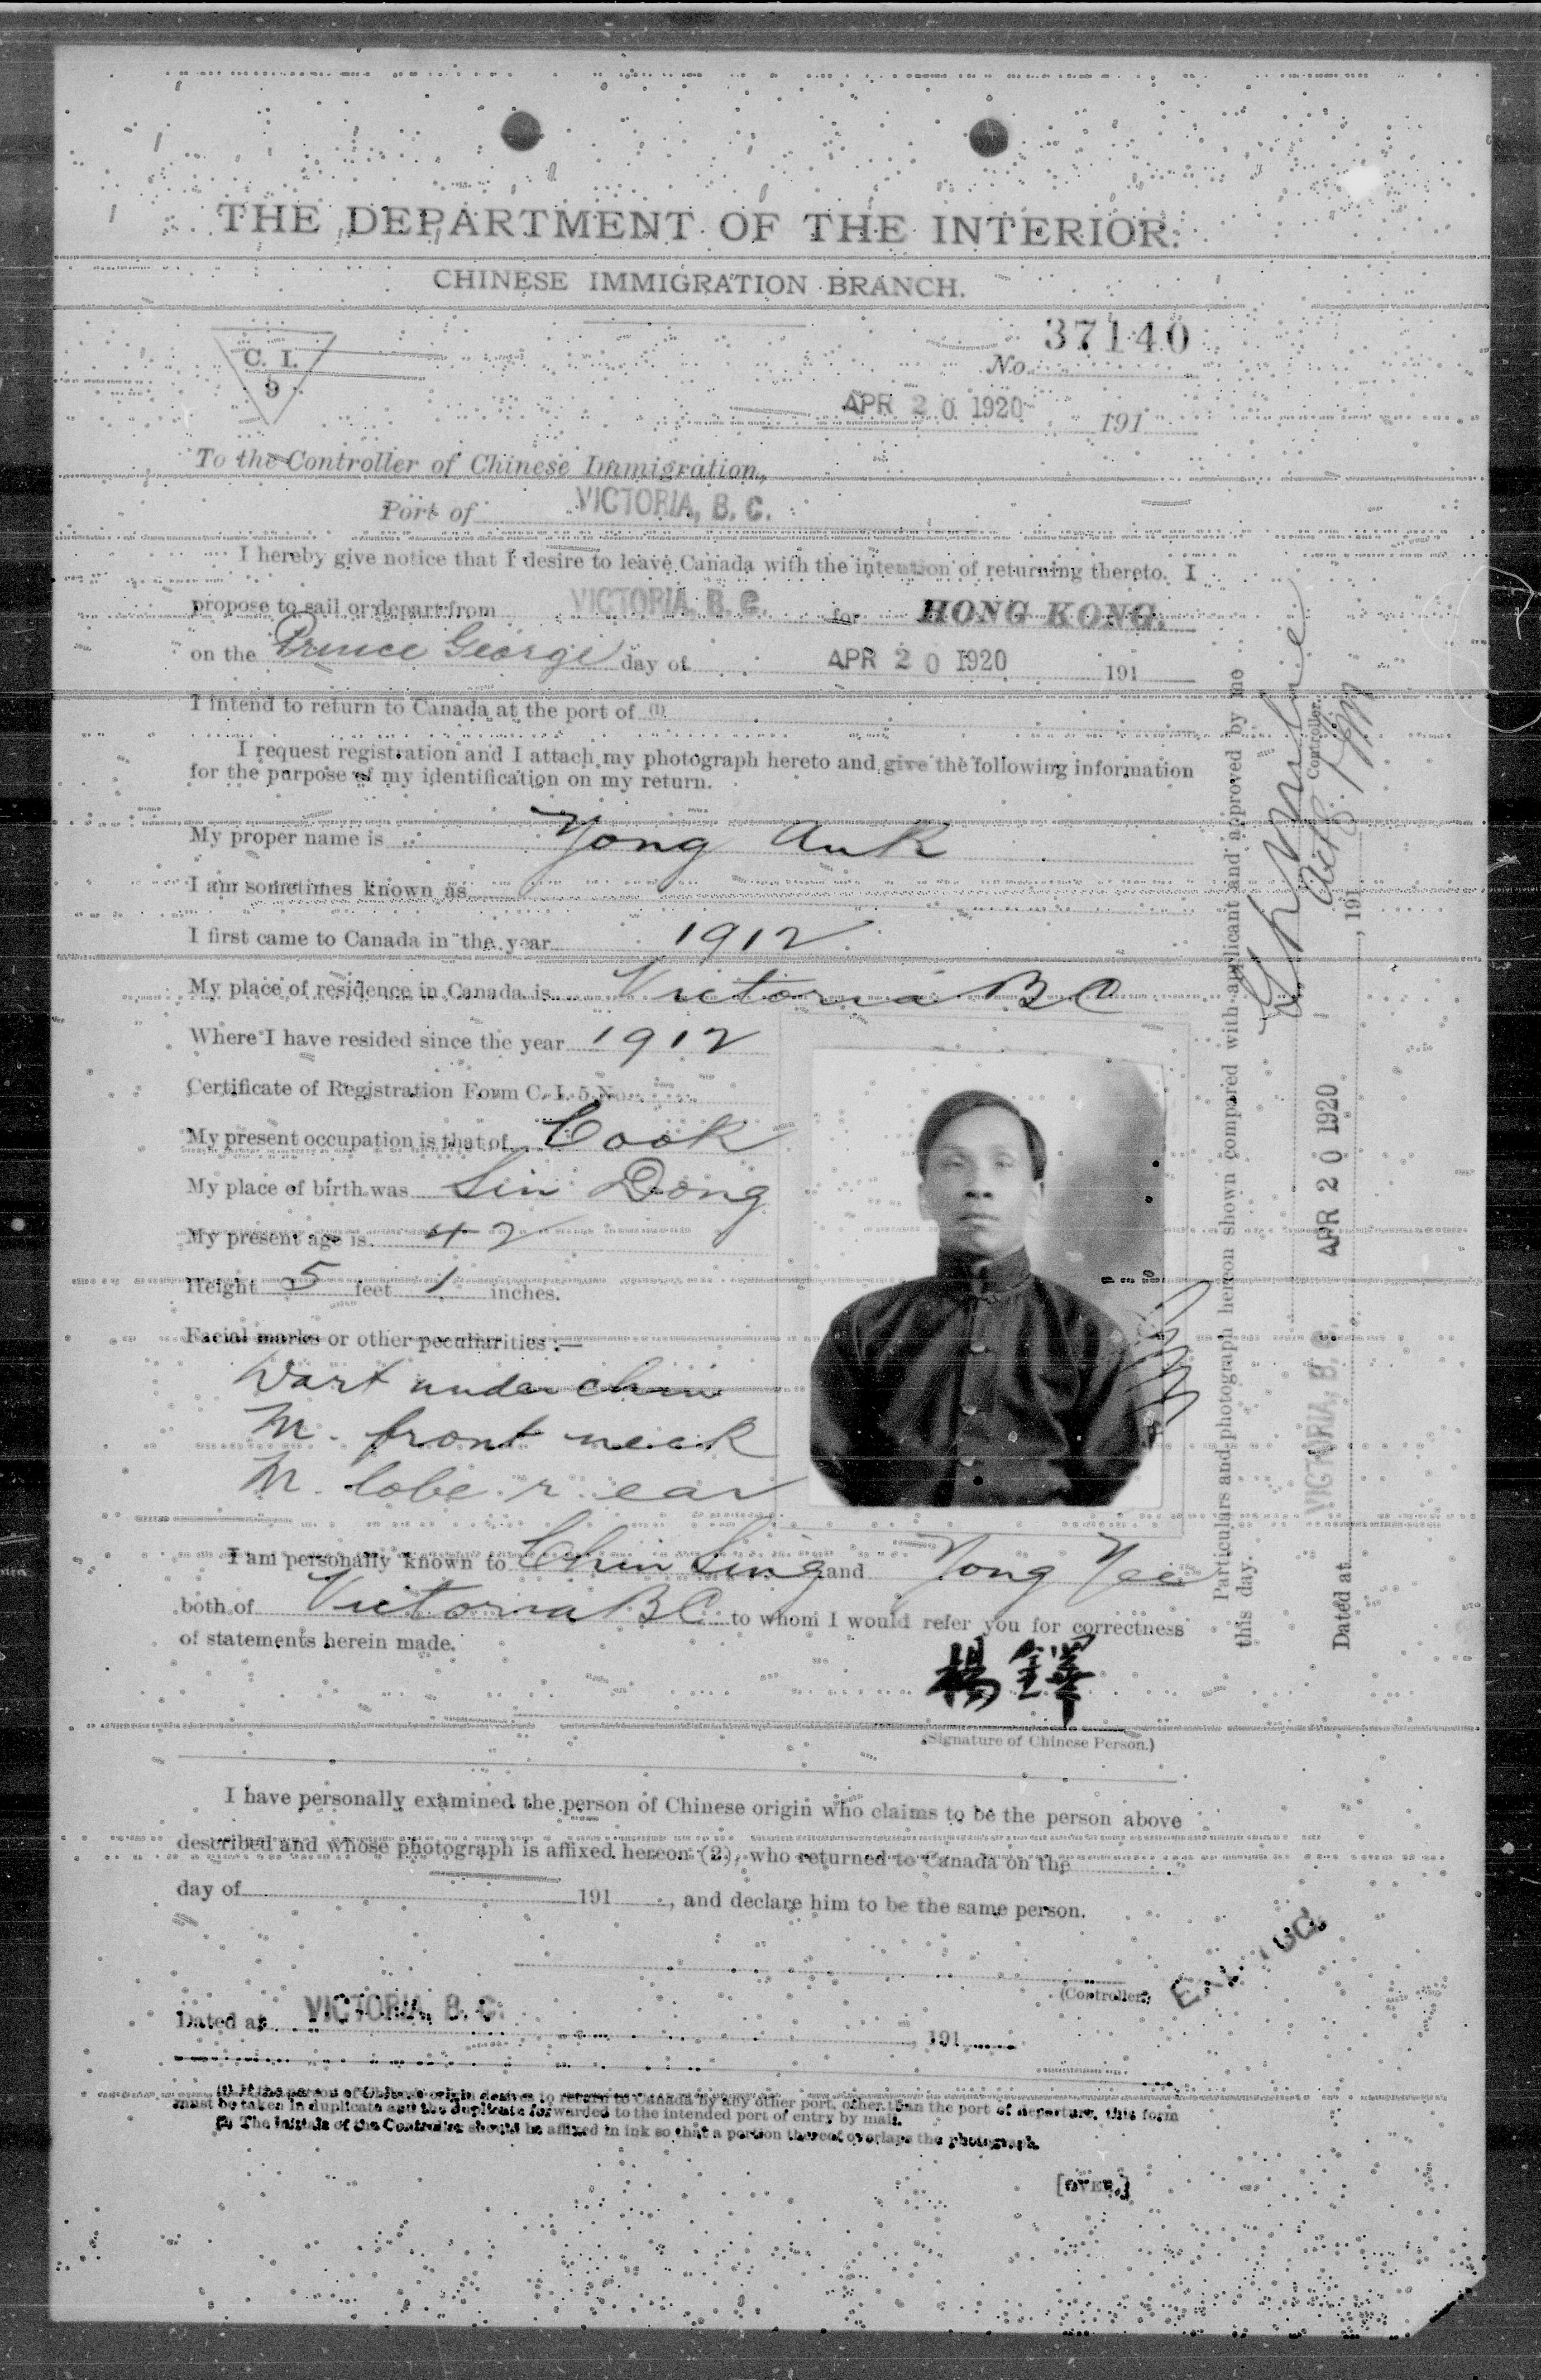 THE DEPARTMENT OF THE INTERIOR.
CHINESE IMMIGRATION BRANCH.
C. I.
9
37140
No.
APR 20 1920 191
To the Controller of Chinese Immigration,
Port of VICTORIA, B. C.
I hereby give notice that I desire to leave Canada with the intention of returning thereto. I
propose to sail or depart from VICTORIA, B. C. for HONG KONG.
on the Prince George day of APR 20 1920 191
I intend to return to Canada at the port of (1)
I request registration and I attach my photograph hereto and give the following information
for the purpose of my identification on my return.
My proper name is Yong Auk
I am sometimes known as
I first came to Canada in the year 1912
My place of residence in Canada is Victoria BC
Where I have resided since the year 1912
Certificate of Registration Form C. I. 5 No.
My present occupation is that of Cook
My place of birth was Sin Dong
My present age is 42
Height 5 feet 1 inches.
Facial marks or other peculiarities :—
Wart under chin
M. front neck
M. lobe r. ear
I am personally known to Chin Sing and Yong Yee
both of Victoria BC to whom I would refer you for correctness
of statements herein made.
楊鐸
(Signature of Chinese Person.)
I have personally examined the person of Chinese origin who claims to be the person above
described and whose photograph is affixed hereon (2), who returned to Canada on the
day of 191 , and declare him to be the same person.
(Controller)
Dated at VICTORIA, B. C. 191
(1) If the person of Chinese origin desires to return to Canada by any other port, other than the port of departure, this form
must be taken in duplicate and the duplicate forwarded to the intended port of entry by mail.
(2) The initials of the Controller should be affixed in ink so that a portion thereof overlaps the photograph.
[OVER.]
Particulars and photograph hereon shown compared with applicant and approved by me
this day.
Controller.
Dated at VICTORIA, B. C. APR 20 1920 , 191